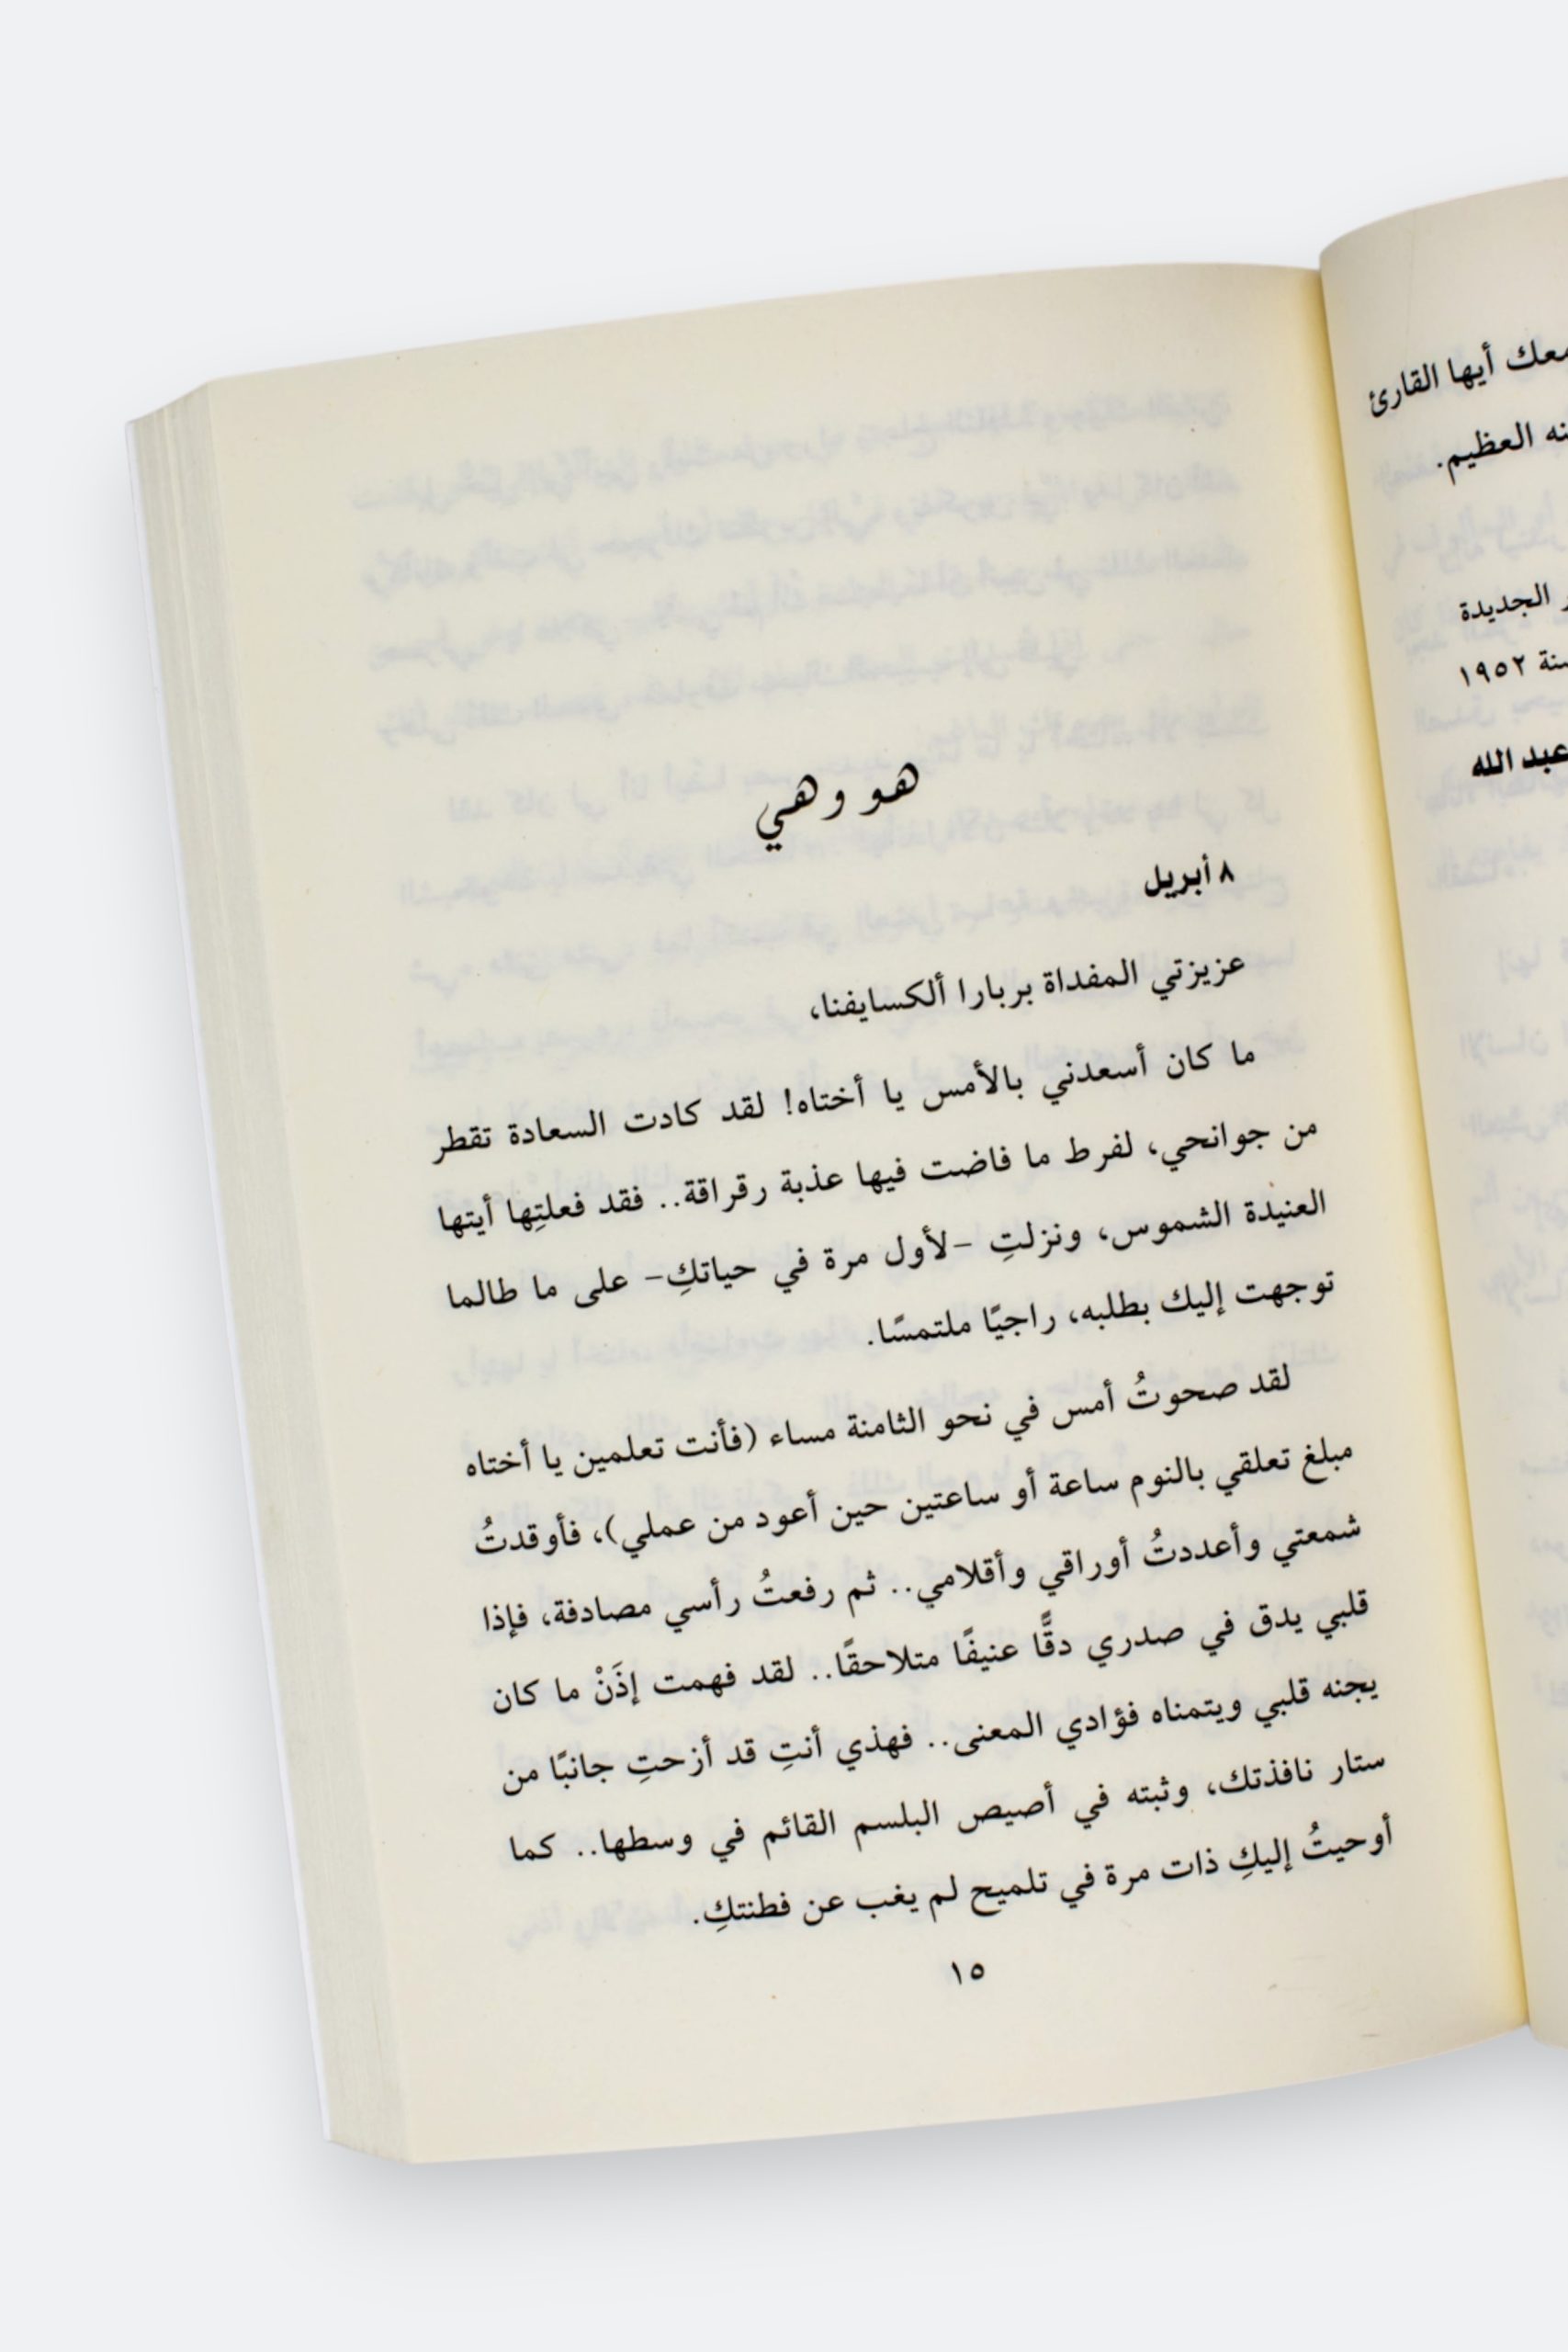 معك أيها القارئ
العظيم.
الجديدة
سنة ١٩٥٢
عبد الله
هو وهي
٨ أبريل
عزيزتي المفداة بربارا ألكسايفنا،
ما كان أسعدني بالأمس يا أختاه! لقد كادت السعادة تقطر
من جوانحي، لفرط ما فاضت فيها عذبة رقراقة.. فقد فعلتِها أيتها
العنيدة الشموس، ونزلتِ -لأول مرة في حياتكِ- على ما طالما
توجهت إليك بطلبه، راجيًا ملتمسًا.
لقد صحوتُ أمس في نحو الثامنة مساء (فأنت تعلمين يا أختاه
مبلغ تعلقي بالنوم ساعة أو ساعتين حين أعود من عملي)، فأوقدتُ
شمعتي وأعددتُ أوراقي وأقلامي.. ثم رفعتُ رأسي مصادفة، فإذا
قلبي يدق في صدري دقًّا عنيفًا متلاحقًا.. لقد فهمت إذَنْ ما كان
يجنه قلبي ويتمناه فؤادي المعنى.. فهذي أنتِ قد أزحتِ جانبًا من
ستار نافذتك، وثبته في أصيص البلسم القائم في وسطها.. كما
أوحيتُ إليكِ ذات مرة في تلميح لم يغب عن فطنتكِ.
١٥